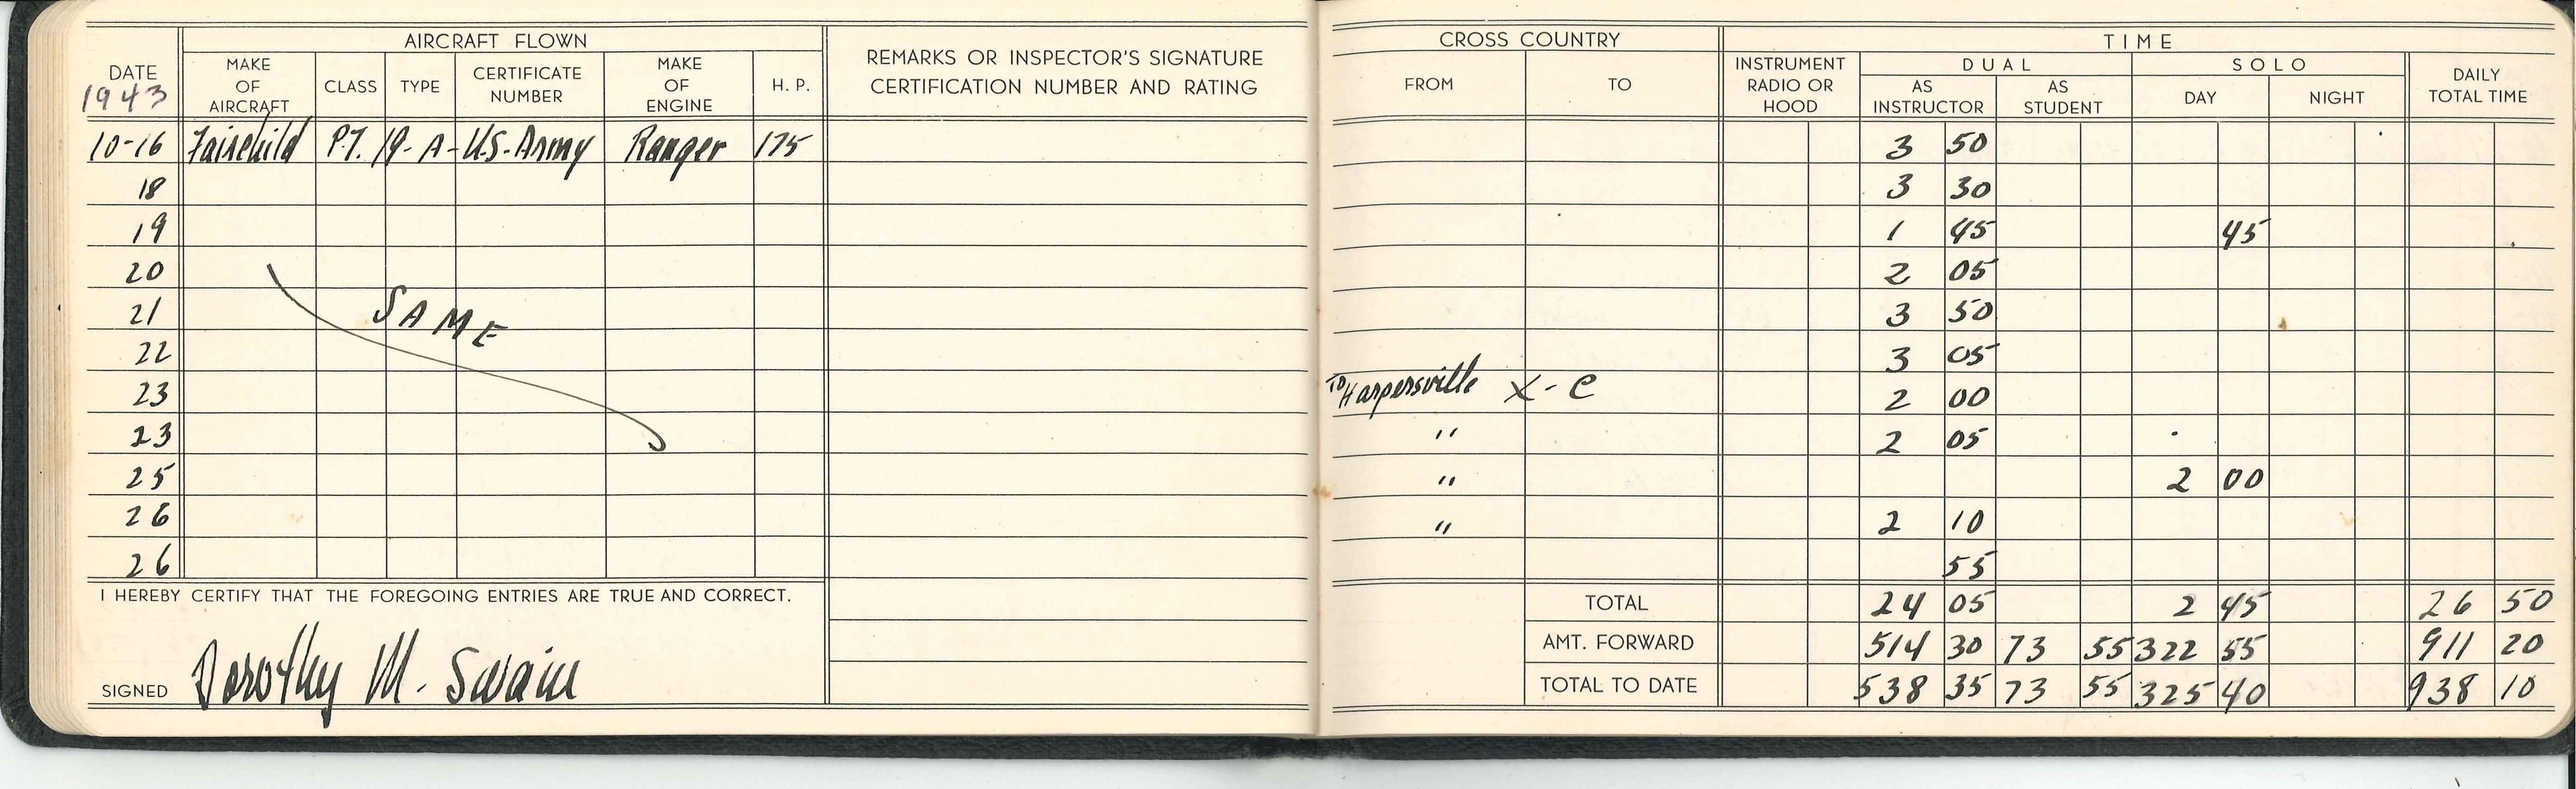 AIRCRAFT FLOWN
DATE
1943
MAKE OF AIRCRAFT
CLASS
TYPE
CERTIFICATE NUMBER
MAKE OF ENGINE
H. P.
REMARKS OR INSPECTOR'S SIGNATURE
CERTIFICATION NUMBER AND RATING
CROSS COUNTRY
FROM
TO
TIME
INSTRUMENT RADIO OR HOOD
DUAL
AS INSTRUCTOR
AS STUDENT
SOLO
DAY
NIGHT
DAILY TOTAL TIME
10-16 Fairchild P.T. 19-A- U.S. Army Ranger 175 3 50
18 3 30
19 1 45 45
20 2 05
21 SAME 3 50
22 3 05
23 To Harpersville X-C 2 00
23 " 2 05
25 " 2 00
26 " 2 10
26 55
I HEREBY CERTIFY THAT THE FOREGOING ENTRIES ARE TRUE AND CORRECT.
SIGNED Dorothy M. Swain
TOTAL 24 05 2 45 26 50
AMT. FORWARD 514 30 73 55 322 55 911 20
TOTAL TO DATE 538 35 73 55 325 40 938 10